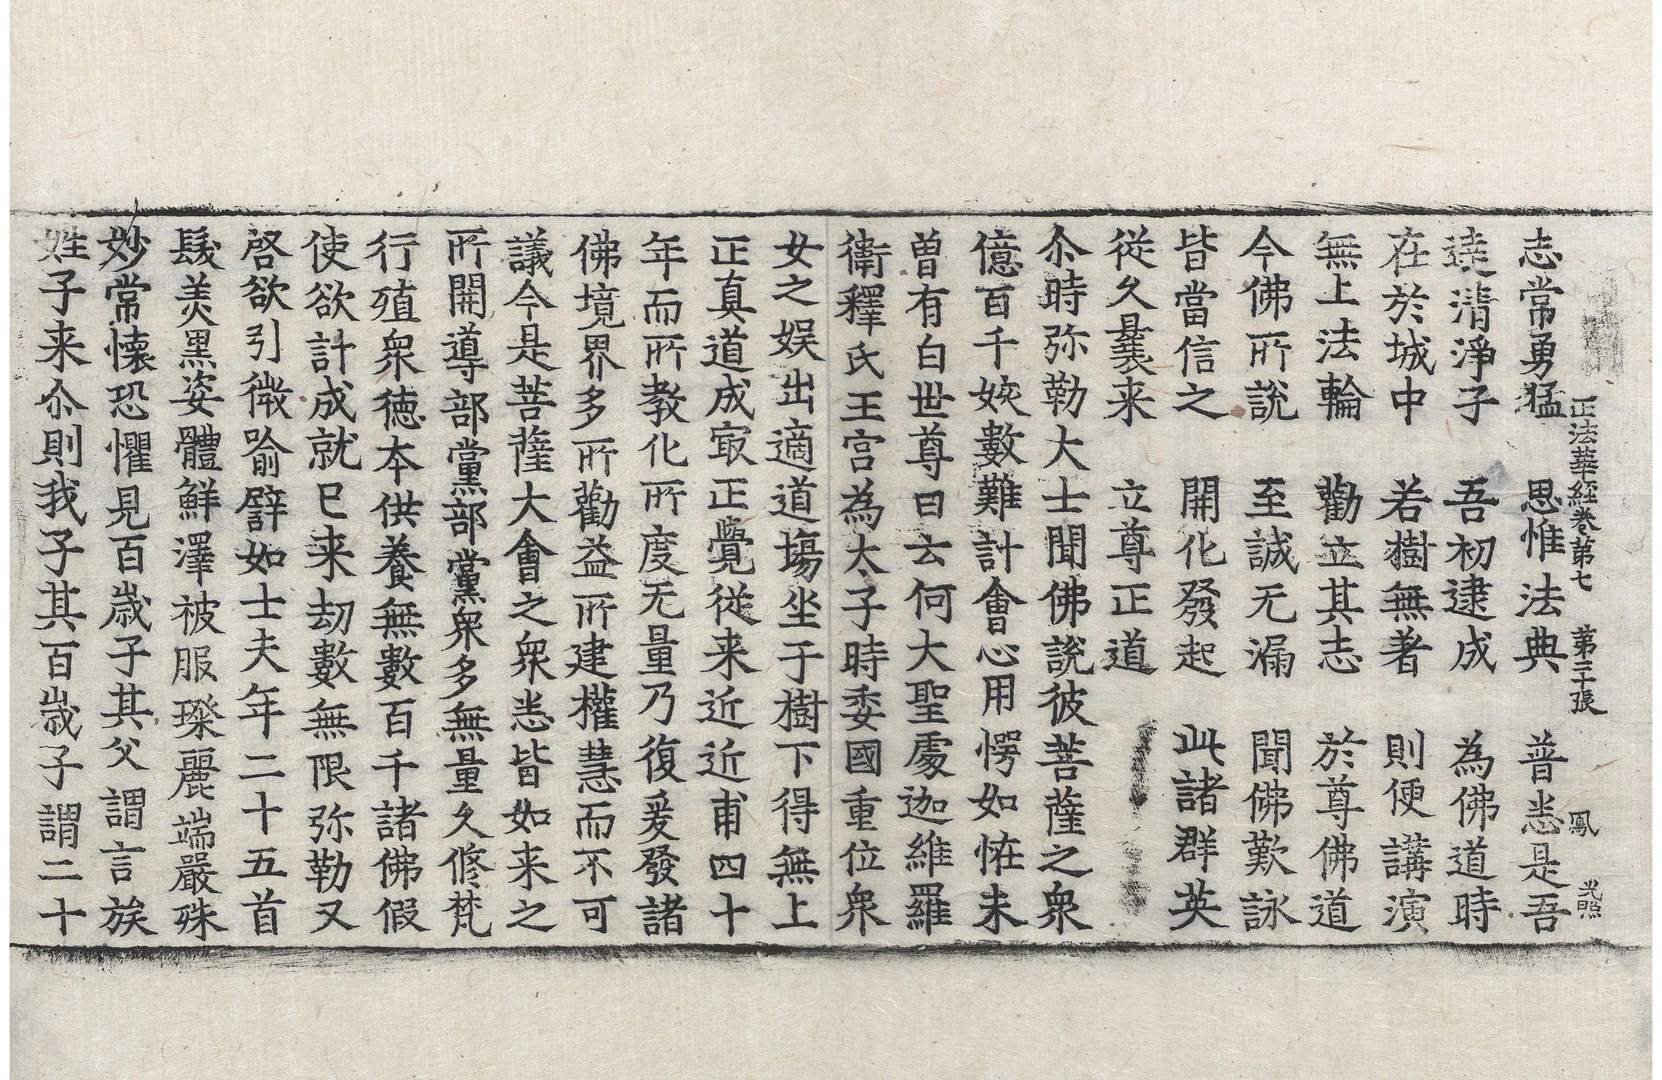 正法華經卷第七 第三十張 鳳 光照
志常勇猛 思惟法典 普悉是吾
遶清淨子 吾初逮成 為佛道時
在於城中 若樹無著 則便講演
無上法輪 勸立其志 於尊佛道
今佛所說 至誠无漏 聞佛歎詠
皆當信之 開化發起 此諸群英
從久曩来 立尊正道
尒時弥勒大士聞佛說彼菩薩之衆
億百千姟數難計會心用愕如恠未
曽有白世尊曰云何大聖處迦維羅
衞釋氏王宫為太子時委國重位衆
女之娱出適道塲坐于樹下得無上
正真道成㝡正覺從来近近甫四十
年而所教化所度无量乃復爰發諸
佛境界多所勸益所建權慧而不可
議今是菩薩大會之衆悉皆如来之
所開導部黨部黨衆多無量久修梵
行殖衆徳本供養無數百千諸佛假
使欲計成就已来劫數無限弥勒又
啓欲引微喻譬如士夫年二十五首
髮美黒姿體鮮澤被服璨麗端嚴殊
妙常懷恐懼見百歳子其父謂言族
姓子来尒則我子其百歳子謂二十